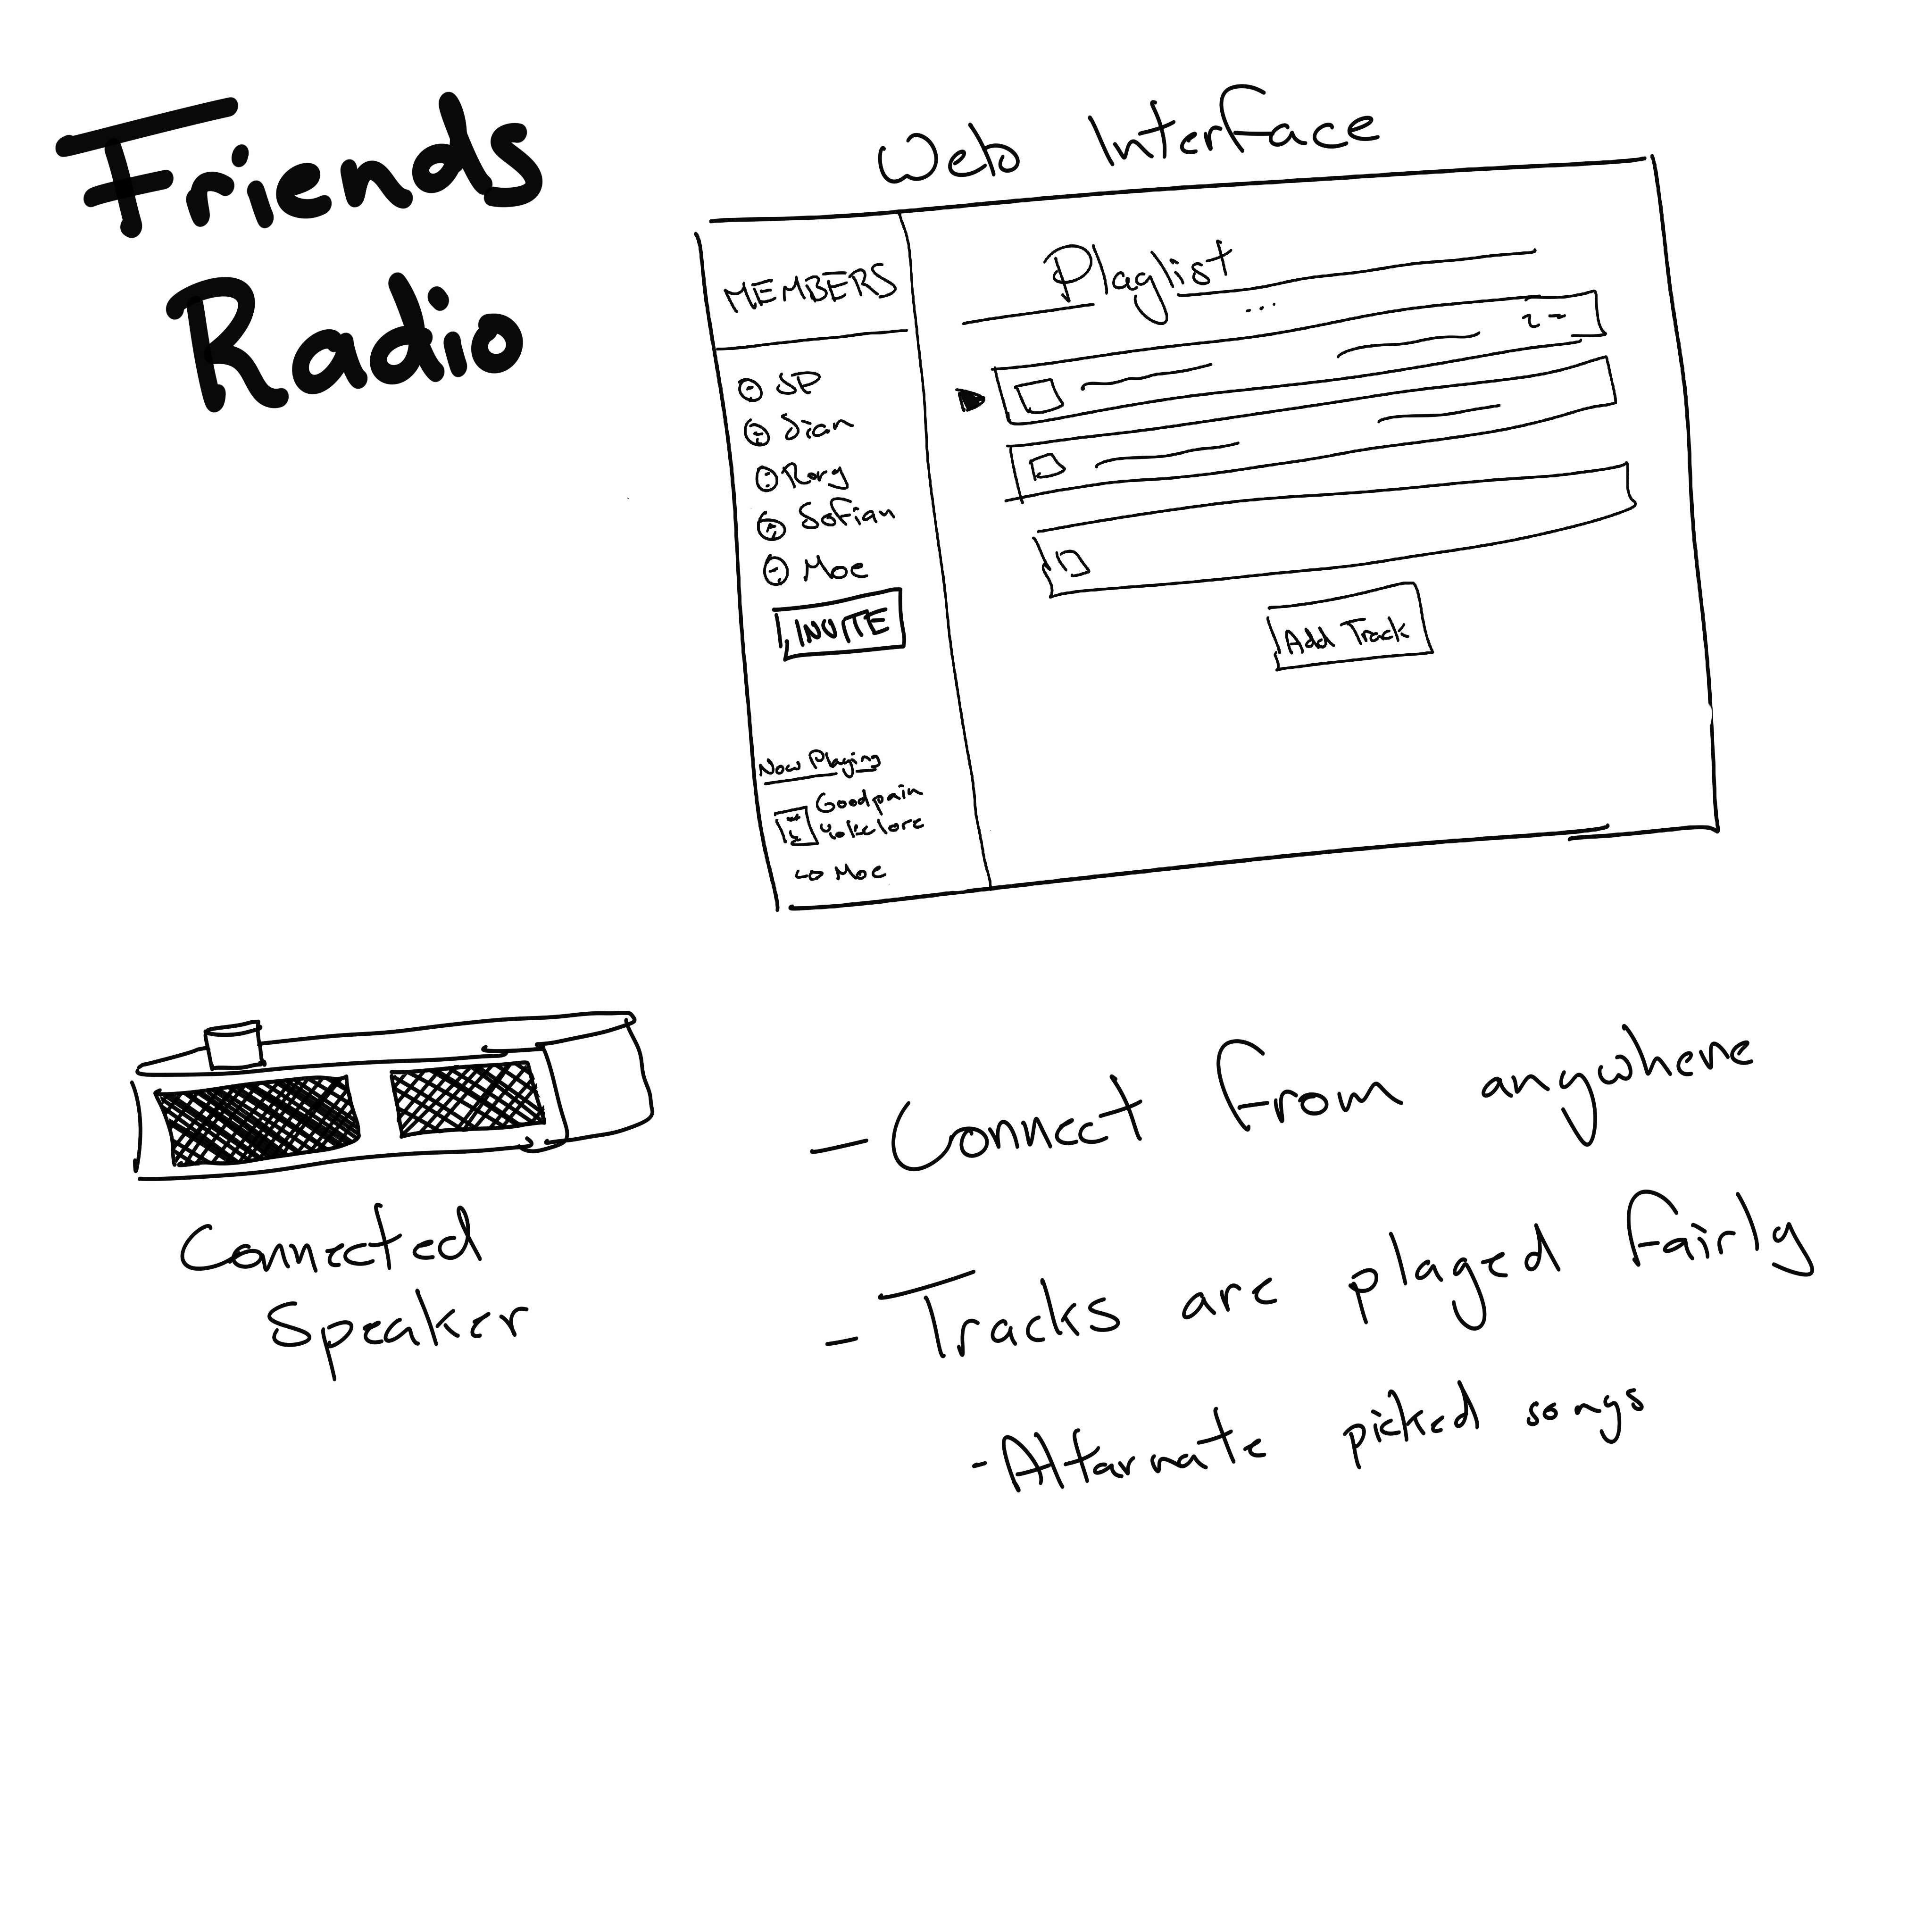 Friends
Radio
Web Interface
MEMBERS
Sean
Rory
Safian
Moe
INVITE
Now Playing
Goodpain
Moe
Playlist
...
Add Track
Connected
Speaker
- Connect from anywhere
- Tracks are played fairly
- Alternate picked songs